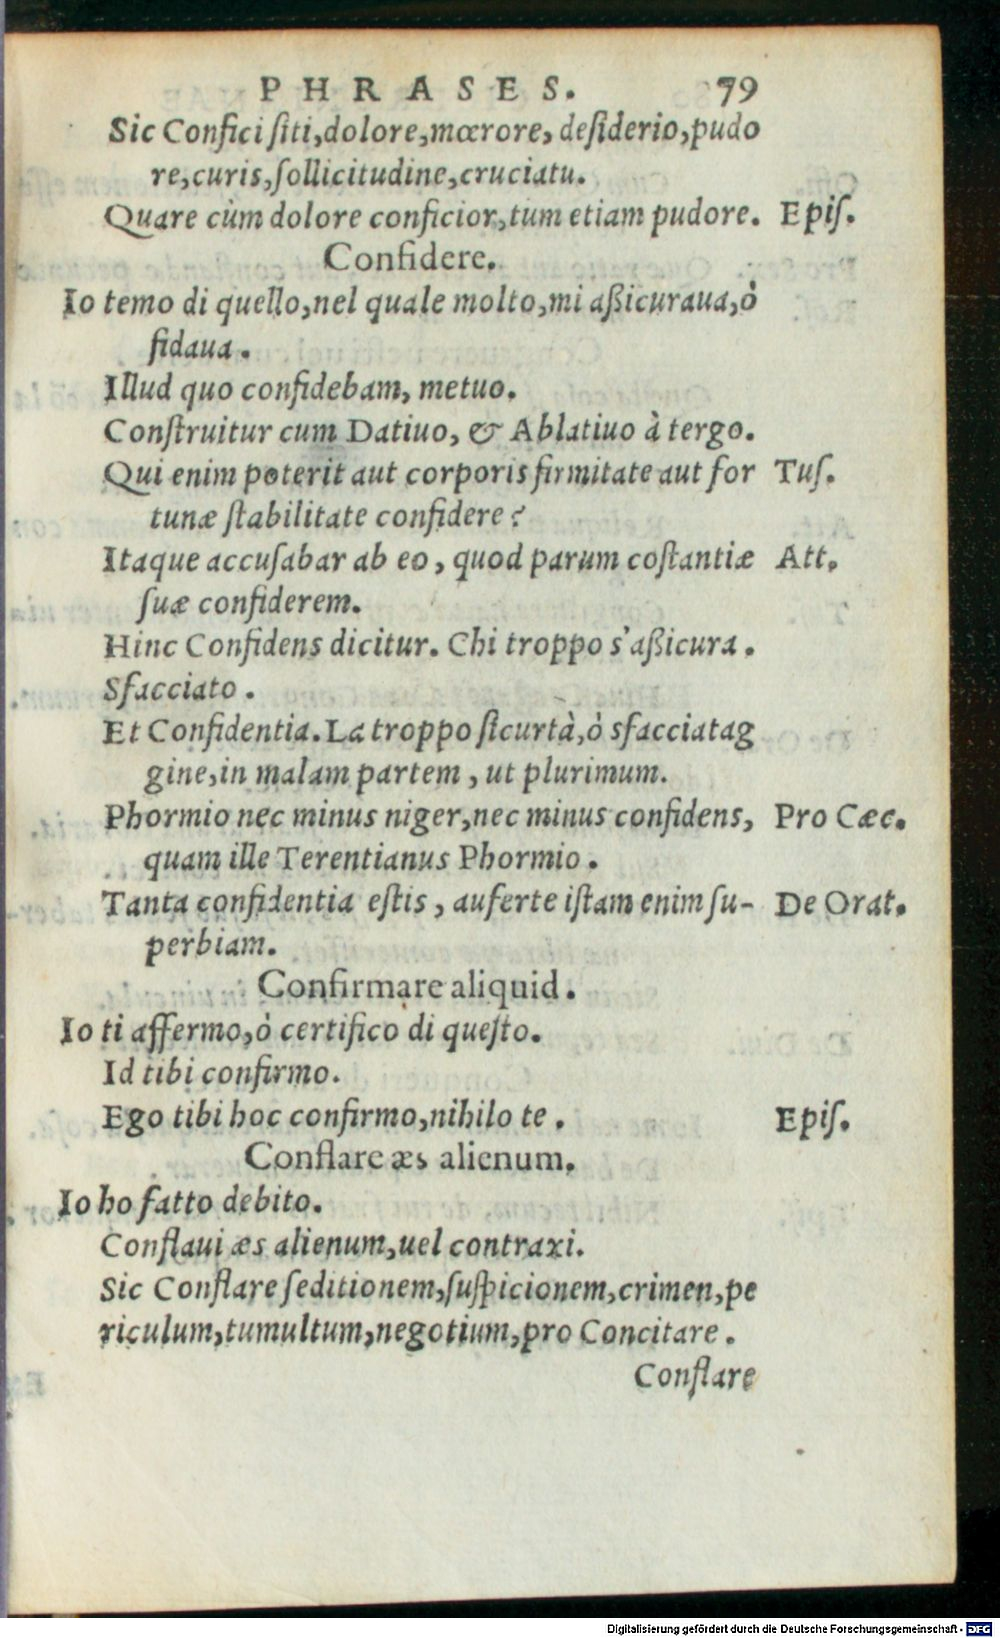 PHRASES. 79
Sic Confici siti,dolore,mœrore, desiderio,pudo
re,curis,sollicitudine,cruciatu.
Quare cùm dolore conficior,tum etiam pudore. Epis.
Confidere.
Io temo di quello,nel quale molto,mi aßicuraua,ò
fidaua.
Illud quo confidebam, metuo.
Construitur cum Datiuo, & Ablatiuo à tergo.
Qui enim poterit aut corporis firmitate aut for Tus.
tunæ stabilitate confidere?
Itaque accusabar ab eo, quod parum costantiæ Att.
suæ confiderem.
Hinc Confidens dicitur. Chi troppo s'aßicura.
Sfacciato.
Et Confidentia. La troppo sicurtà,ò sfacciatag
gine,in malam partem, ut plurimum.
Phormio nec minus niger,nec minus confidens, Pro Cæc.
quam ille Terentianus Phormio.
Tanta confidentia estis, auferte istam enim su- De Orat.
perbiam.
Confirmare aliquid.
Io ti affermo,ò certifico di questo.
Id tibi confirmo.
Ego tibi hoc confirmo,nihilo te. Epis.
Conflare æs alienum.
Io ho fatto debito.
Conflaui æs alienum,uel contraxi.
Sic Conflare seditionem,suspicionem,crimen,pe
riculum,tumultum,negotium,pro Concitare.
Conflare
Digitalisierung gefördert durch die Deutsche Forschungsgemeinschaft - DFG